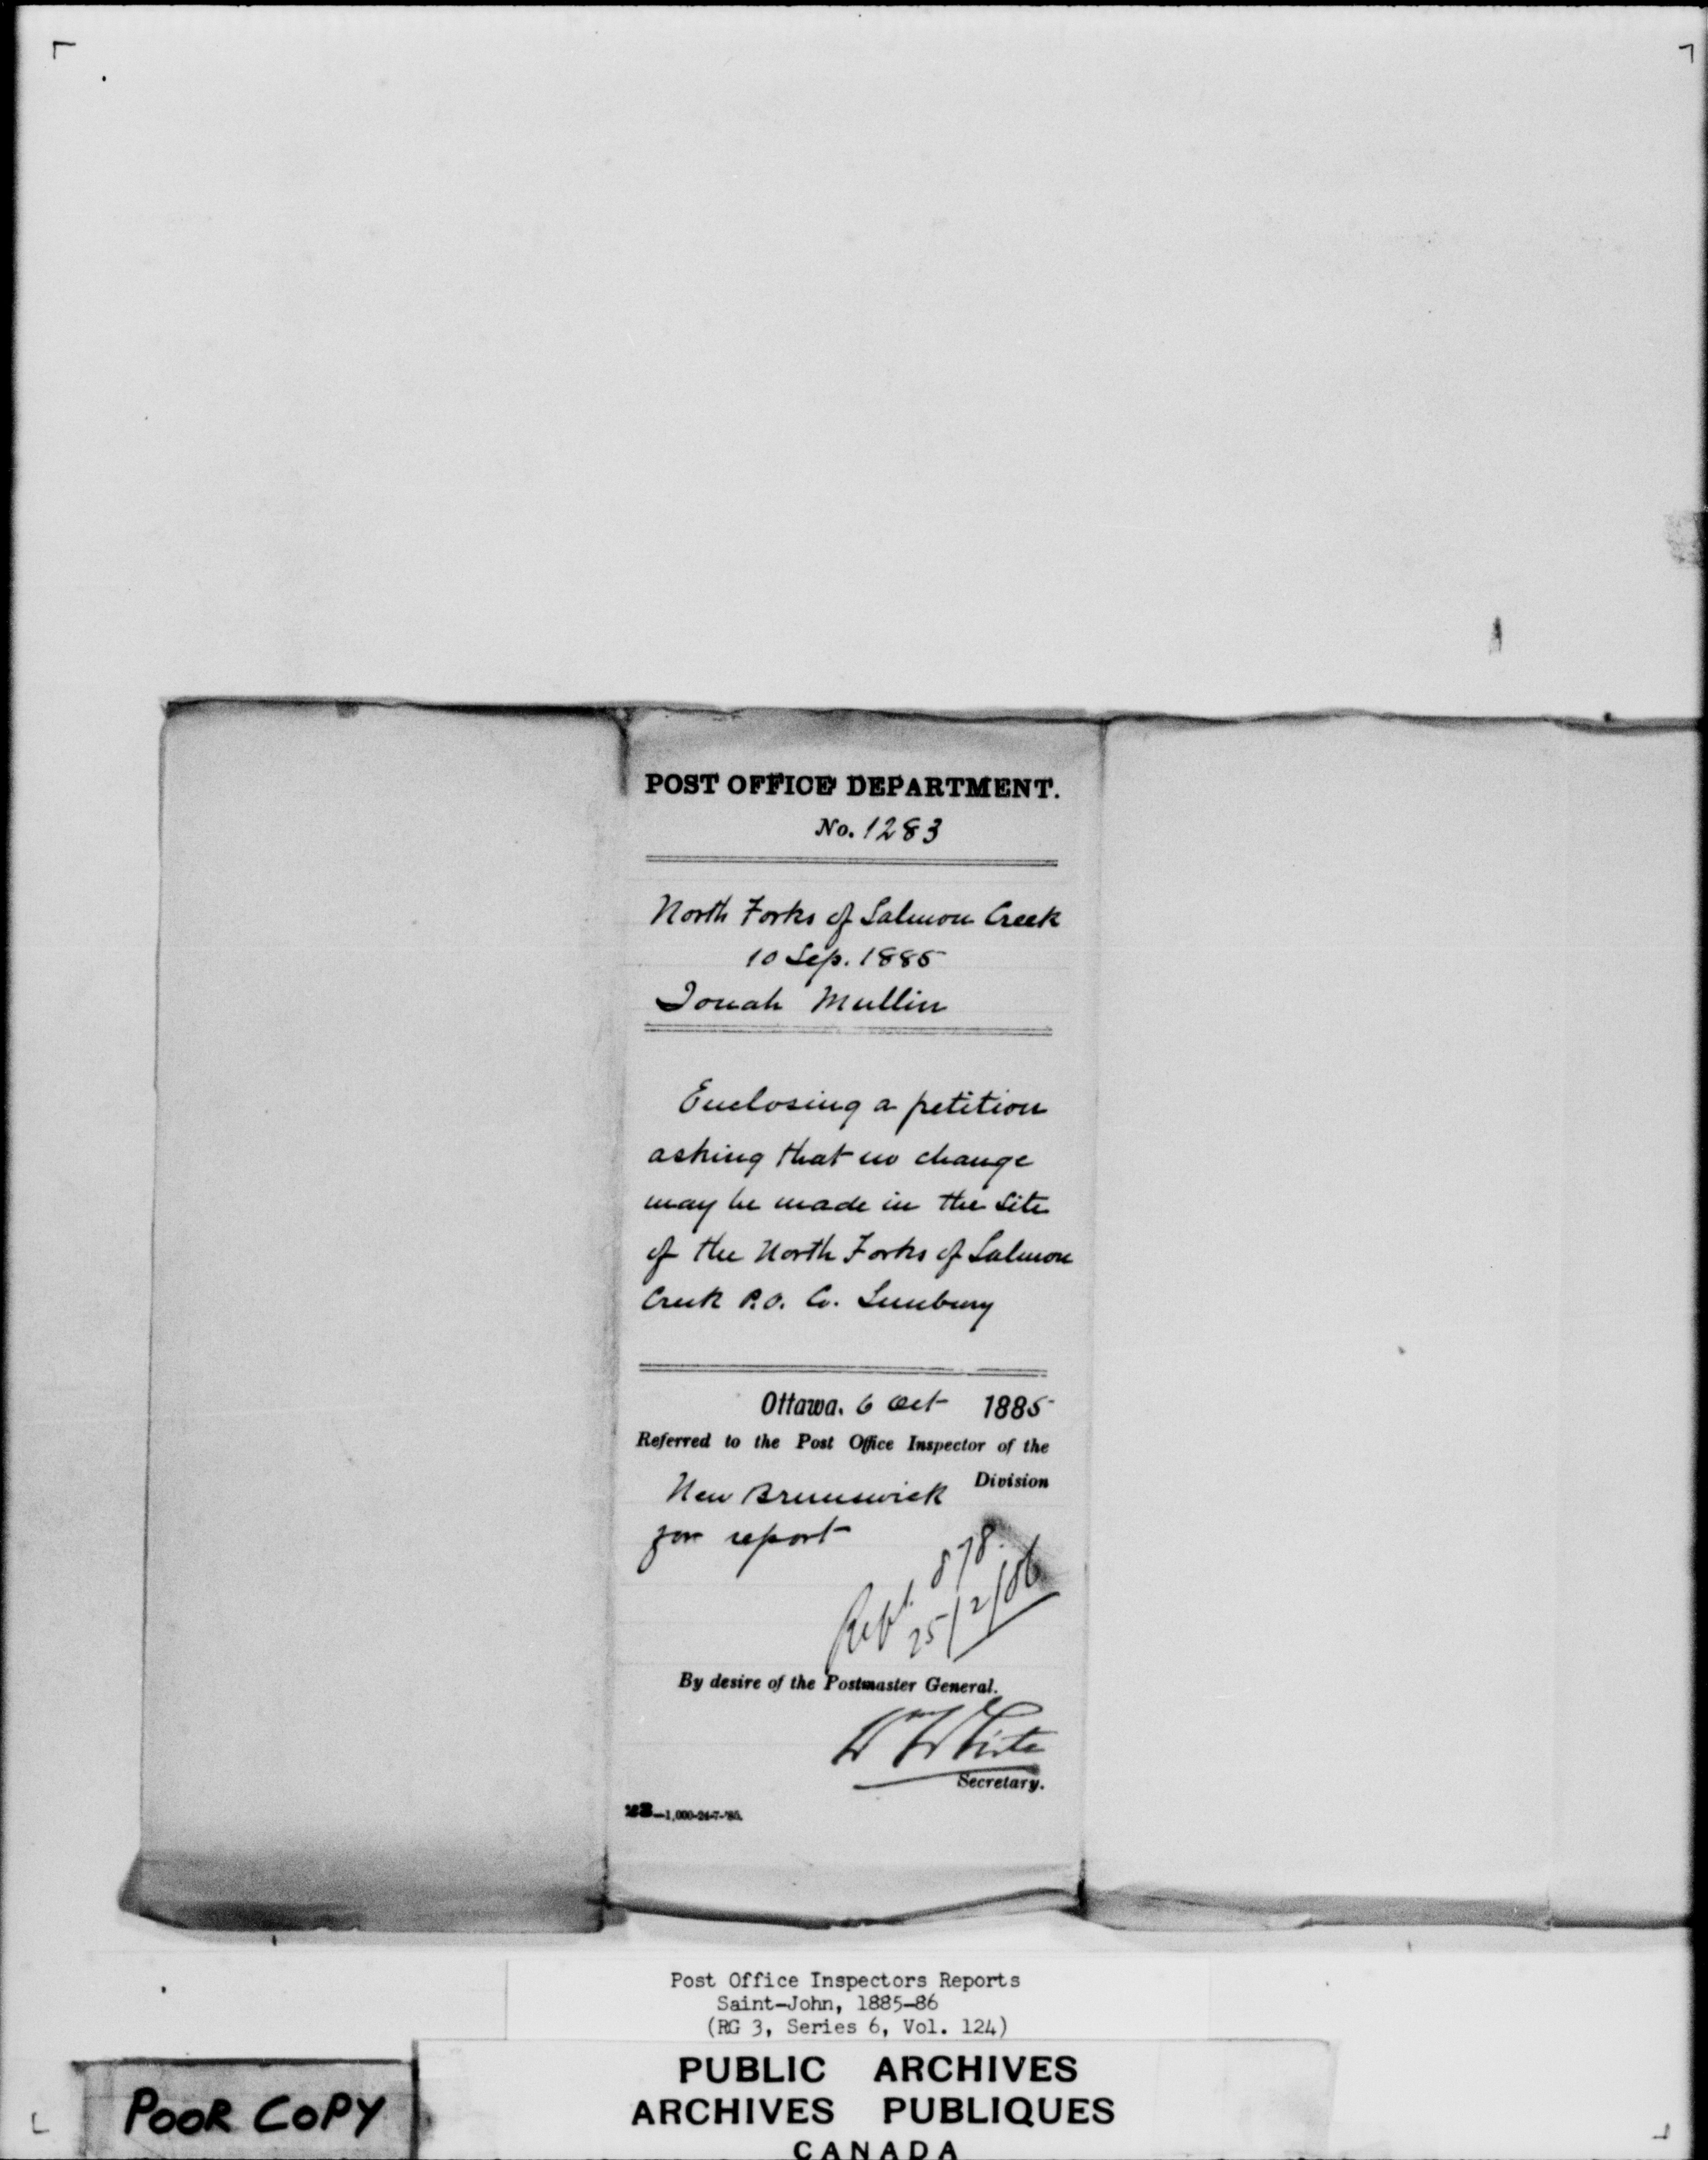 POST OFFICE DEPARTMENT.
No. 1283
North Forks of Salmon Creek
10 Sep. 1885
Jonah Mullin
Enclosing a petition
asking that no change
may be made in the site
of the North Forks of Salmon
Creek P.O. Co. Sunbury
Ottawa. 6 Oct 1885
Referred to the Post Office Inspector of the
New Brunswick Division
for report
Rept. 878.
25/2/86
By desire of the Postmaster General.
Wm White
Secretary.
23—1,000-24-7-'85.
Post Office Inspectors Reports
Saint-John, 1885-86
(RG 3, Series 6, Vol. 124)
PUBLIC ARCHIVES
ARCHIVES PUBLIQUES
CANADA
POOR COPY